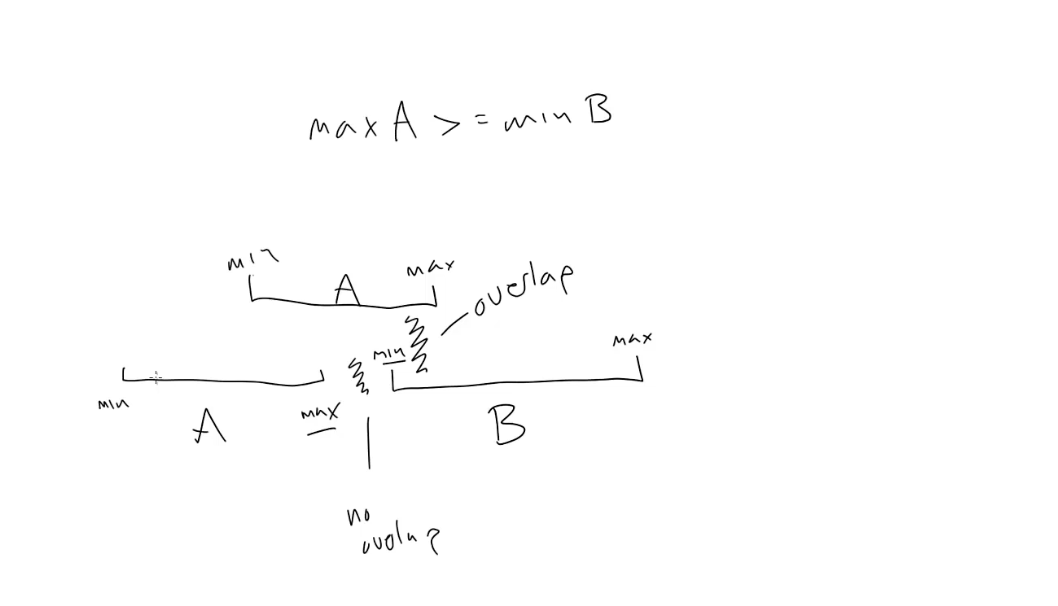 max A >= min B
min
A
max
overlap
min
max
min
A
max
B
no